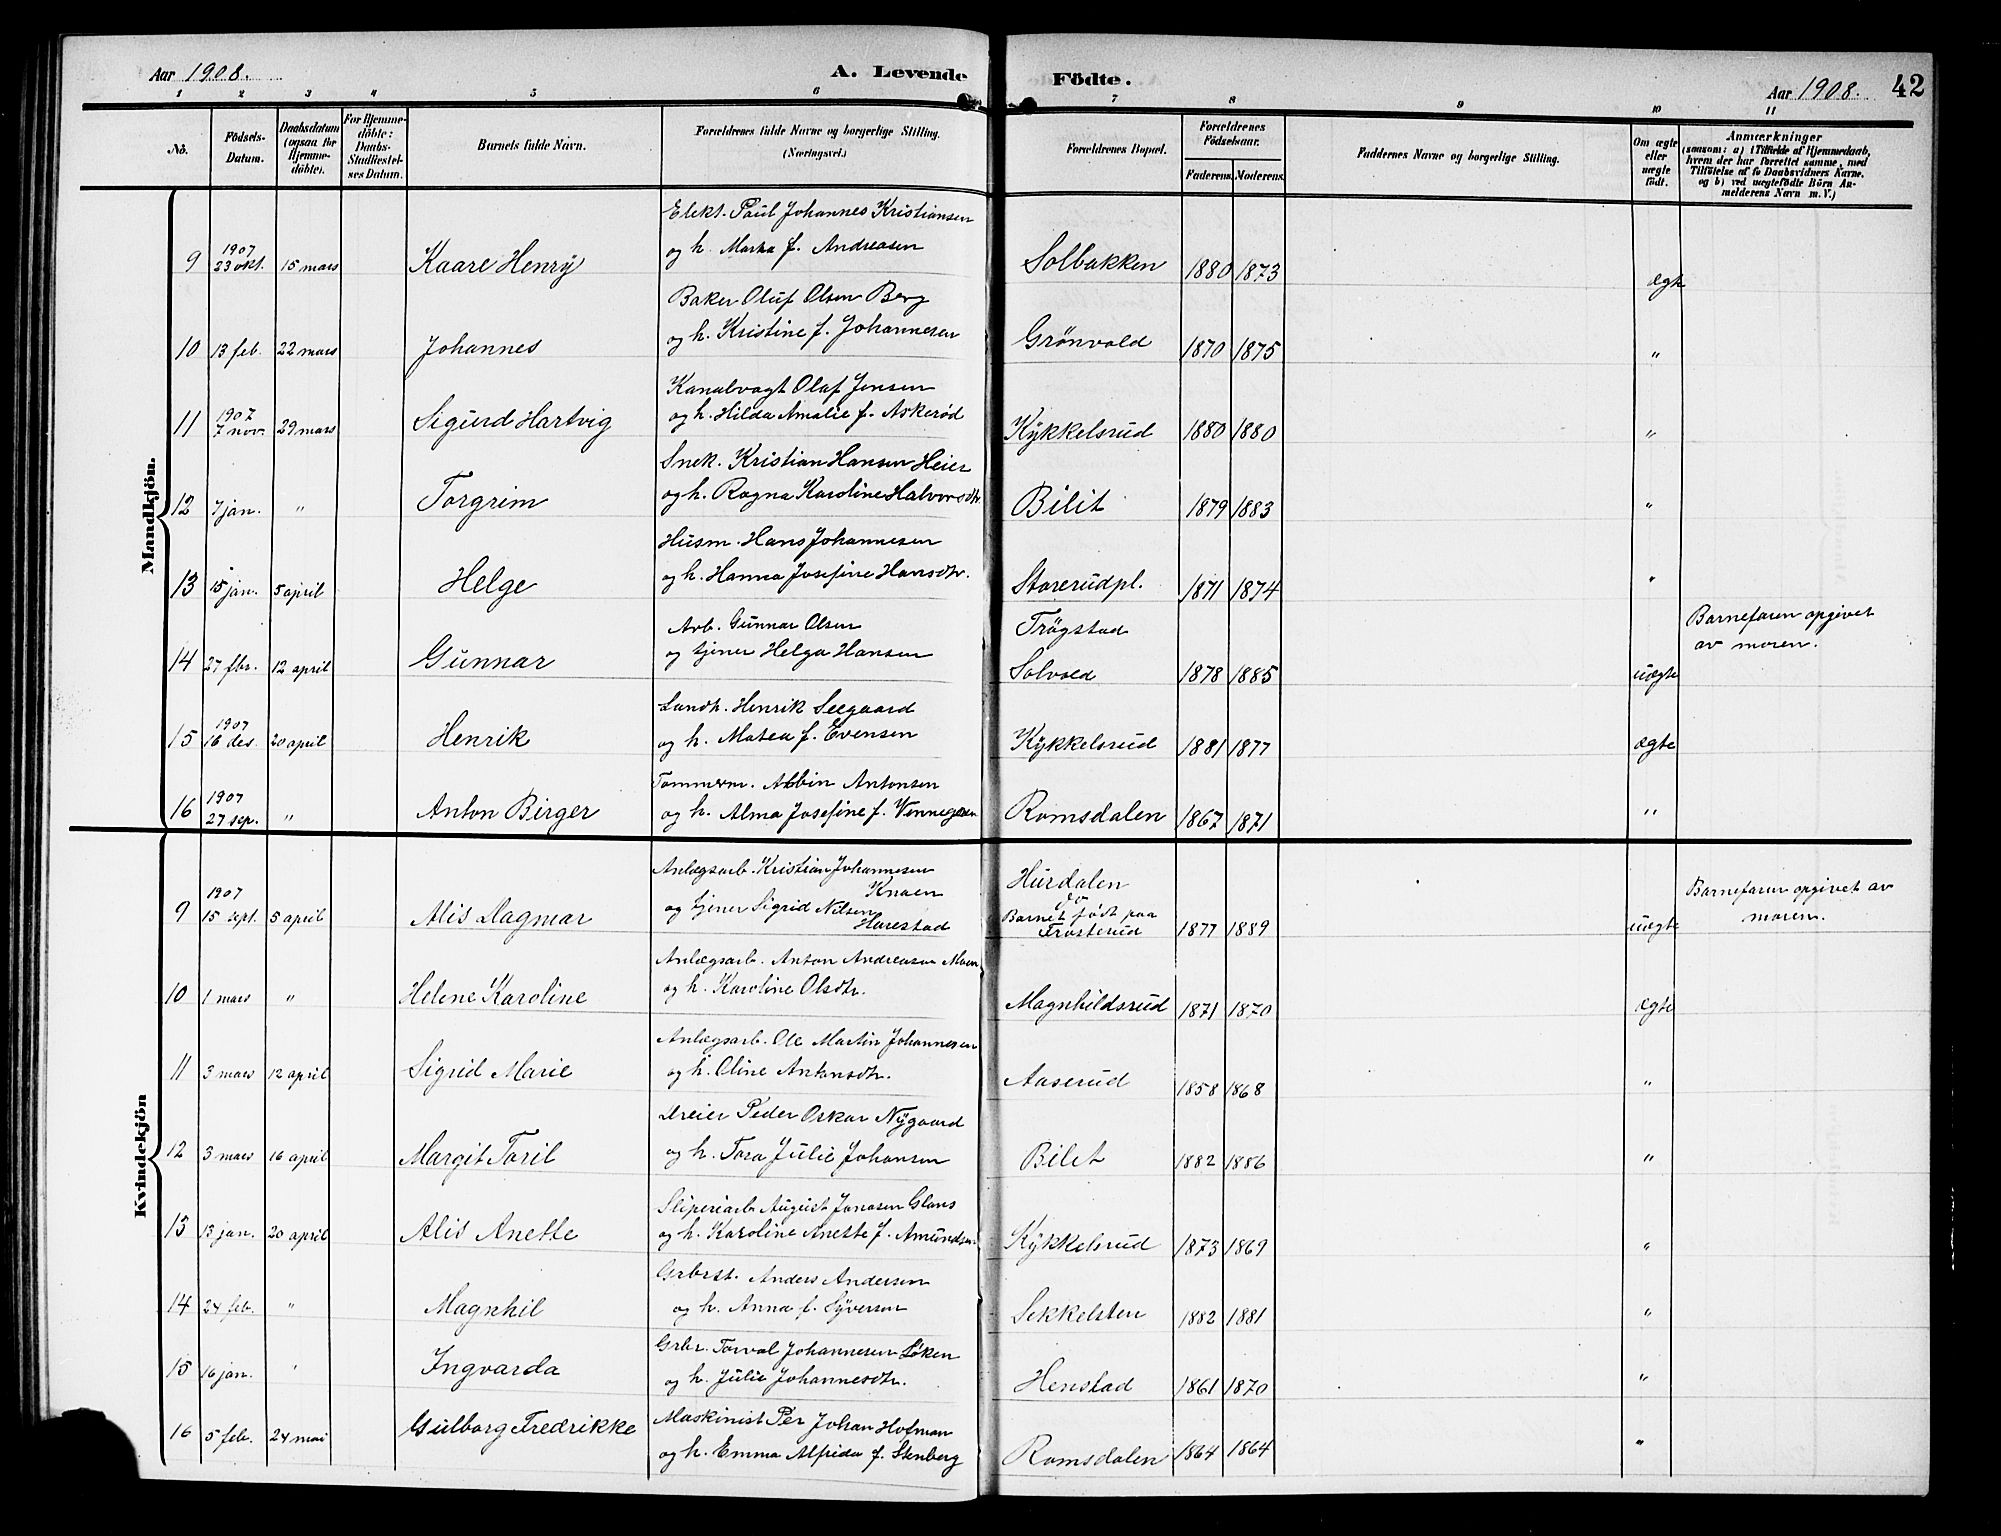 Aar 1908.
A. Levende Födte.
Aar 1908. 42
1 2 3 4 5 6 7 8 9 10 11
No.
Födsels-Datum.
Daabsdatum (ogsaa for Hjemme-döbte).
For Hjemme-döbte: Daabs-Stadfæstel-ses Datum.
Barnets fulde Navn.
Forældrenes fulde Navne og borgerlige Stilling. (Næringsvei.)
Forældrenes Bopæl.
Forældrenes Födselsaar.
Faderens. Moderens.
Faddernes Navne og borgerlige Stilling.
Om ægte eller uægte födt.
Anmærkninger
(saasom: a) i Tilfælde af Hjemmedaab, hvem der har forrettet samme, med Tilföielse af to Daabsvidners Navne, og b) ved uægtefödte Börn An-melderens Navn m. V.)
Mandkjön.
Elekt. Paul Johannes Kristiansen
9 1907 23 okt. 15 mars Kaare Henry og h. Marta f. Andreasen Solbakken 1880 1873 ægte
Baker Oluf Olsen Berg
10 13 feb. 22 mars Johannes og h. Kristine f. Johannesen Grønvold 1870 1875 "
Kanalvagt Olaf Jensen
11 1907 7 nov. 29 mars Sigurd Hartvig og h. Hilda Amalie f. Askerød Kykkelsrud 1880 1880 "
Snek. Kristian Hansen Heier
12 7 jan. " Torgrim og h. Ragna Karoline Halvorsdtr Bilit 1879 1883 "
Husm. Hans Johannesen
13 15 jan. 5 april Helge og h. Hanna Josefine Hansdtr. Storerudpl. 1871 1874 "
Arb. Gunnar Olsen Trøgstad Barnefaren opgivet
14 27 fbr. 12 april Gunnar og tjener Helga Hansen Solvold 1878 1885 uægte av moren.
Landh. Henrik Seegaard
15 1907 16 des. 20 april Henrik og h. Matea f. Evensen Kykkelsrud 1881 1877 ægte
Tømmerm. Albin Antonsen
16 1907 27 sep. " Anton Birger og h. Alma Josefine f. Romsdalen 1867 1871 "
Kvindekjön
Anlægsarb. Kristian Johannesen Knaen Hurdalen Barnefaren opgivet av
9 1907 15 sept. 5 april Alis Dagmar og tjener Sigrid Nilsen Harestad do Barnet født paa Frosterud 1877 1889 uægte moren.
Anlægsarb. Anton Andreasen Moen
10 1 mars " Helene Karoline og h. Karoline Olsdtr. Magnhildsrud 1871 1870 ægte
Anlægsarb. Ole Martin Johannesen
11 3 mars 12 april Sigrid Marie og h. Oline Antonsdtr. Aaserud 1858 1868 "
Dreier Peder Oskar Nygaard
12 3 mars 16 april Margit Toril og h. Tora Julie Johansen Bilet 1882 1886 "
Sliperiarb August Jonasen Glans
13 13 jan. 20 april Alis Anette og h. Karoline Anette f. Amundsen. Kykkelsrud 1873 1869 "
Grbrst. Anders Andersen
14 24 feb. " Magnhil og h. Anna f. Syversen Sekkelsten 1882 1881 "
Grbr. Torval Johannesen Løken
15 16 jan. " Ingvarda og h. Julie Johannesdtr. Henstad 1861 1870 "
Maskinist Per Johan Hofman
16 5 feb. 24 mai Gulborg Fredrikke og h. Emma Alfrida f. Stenberg Romsdalen 1864 1864 "